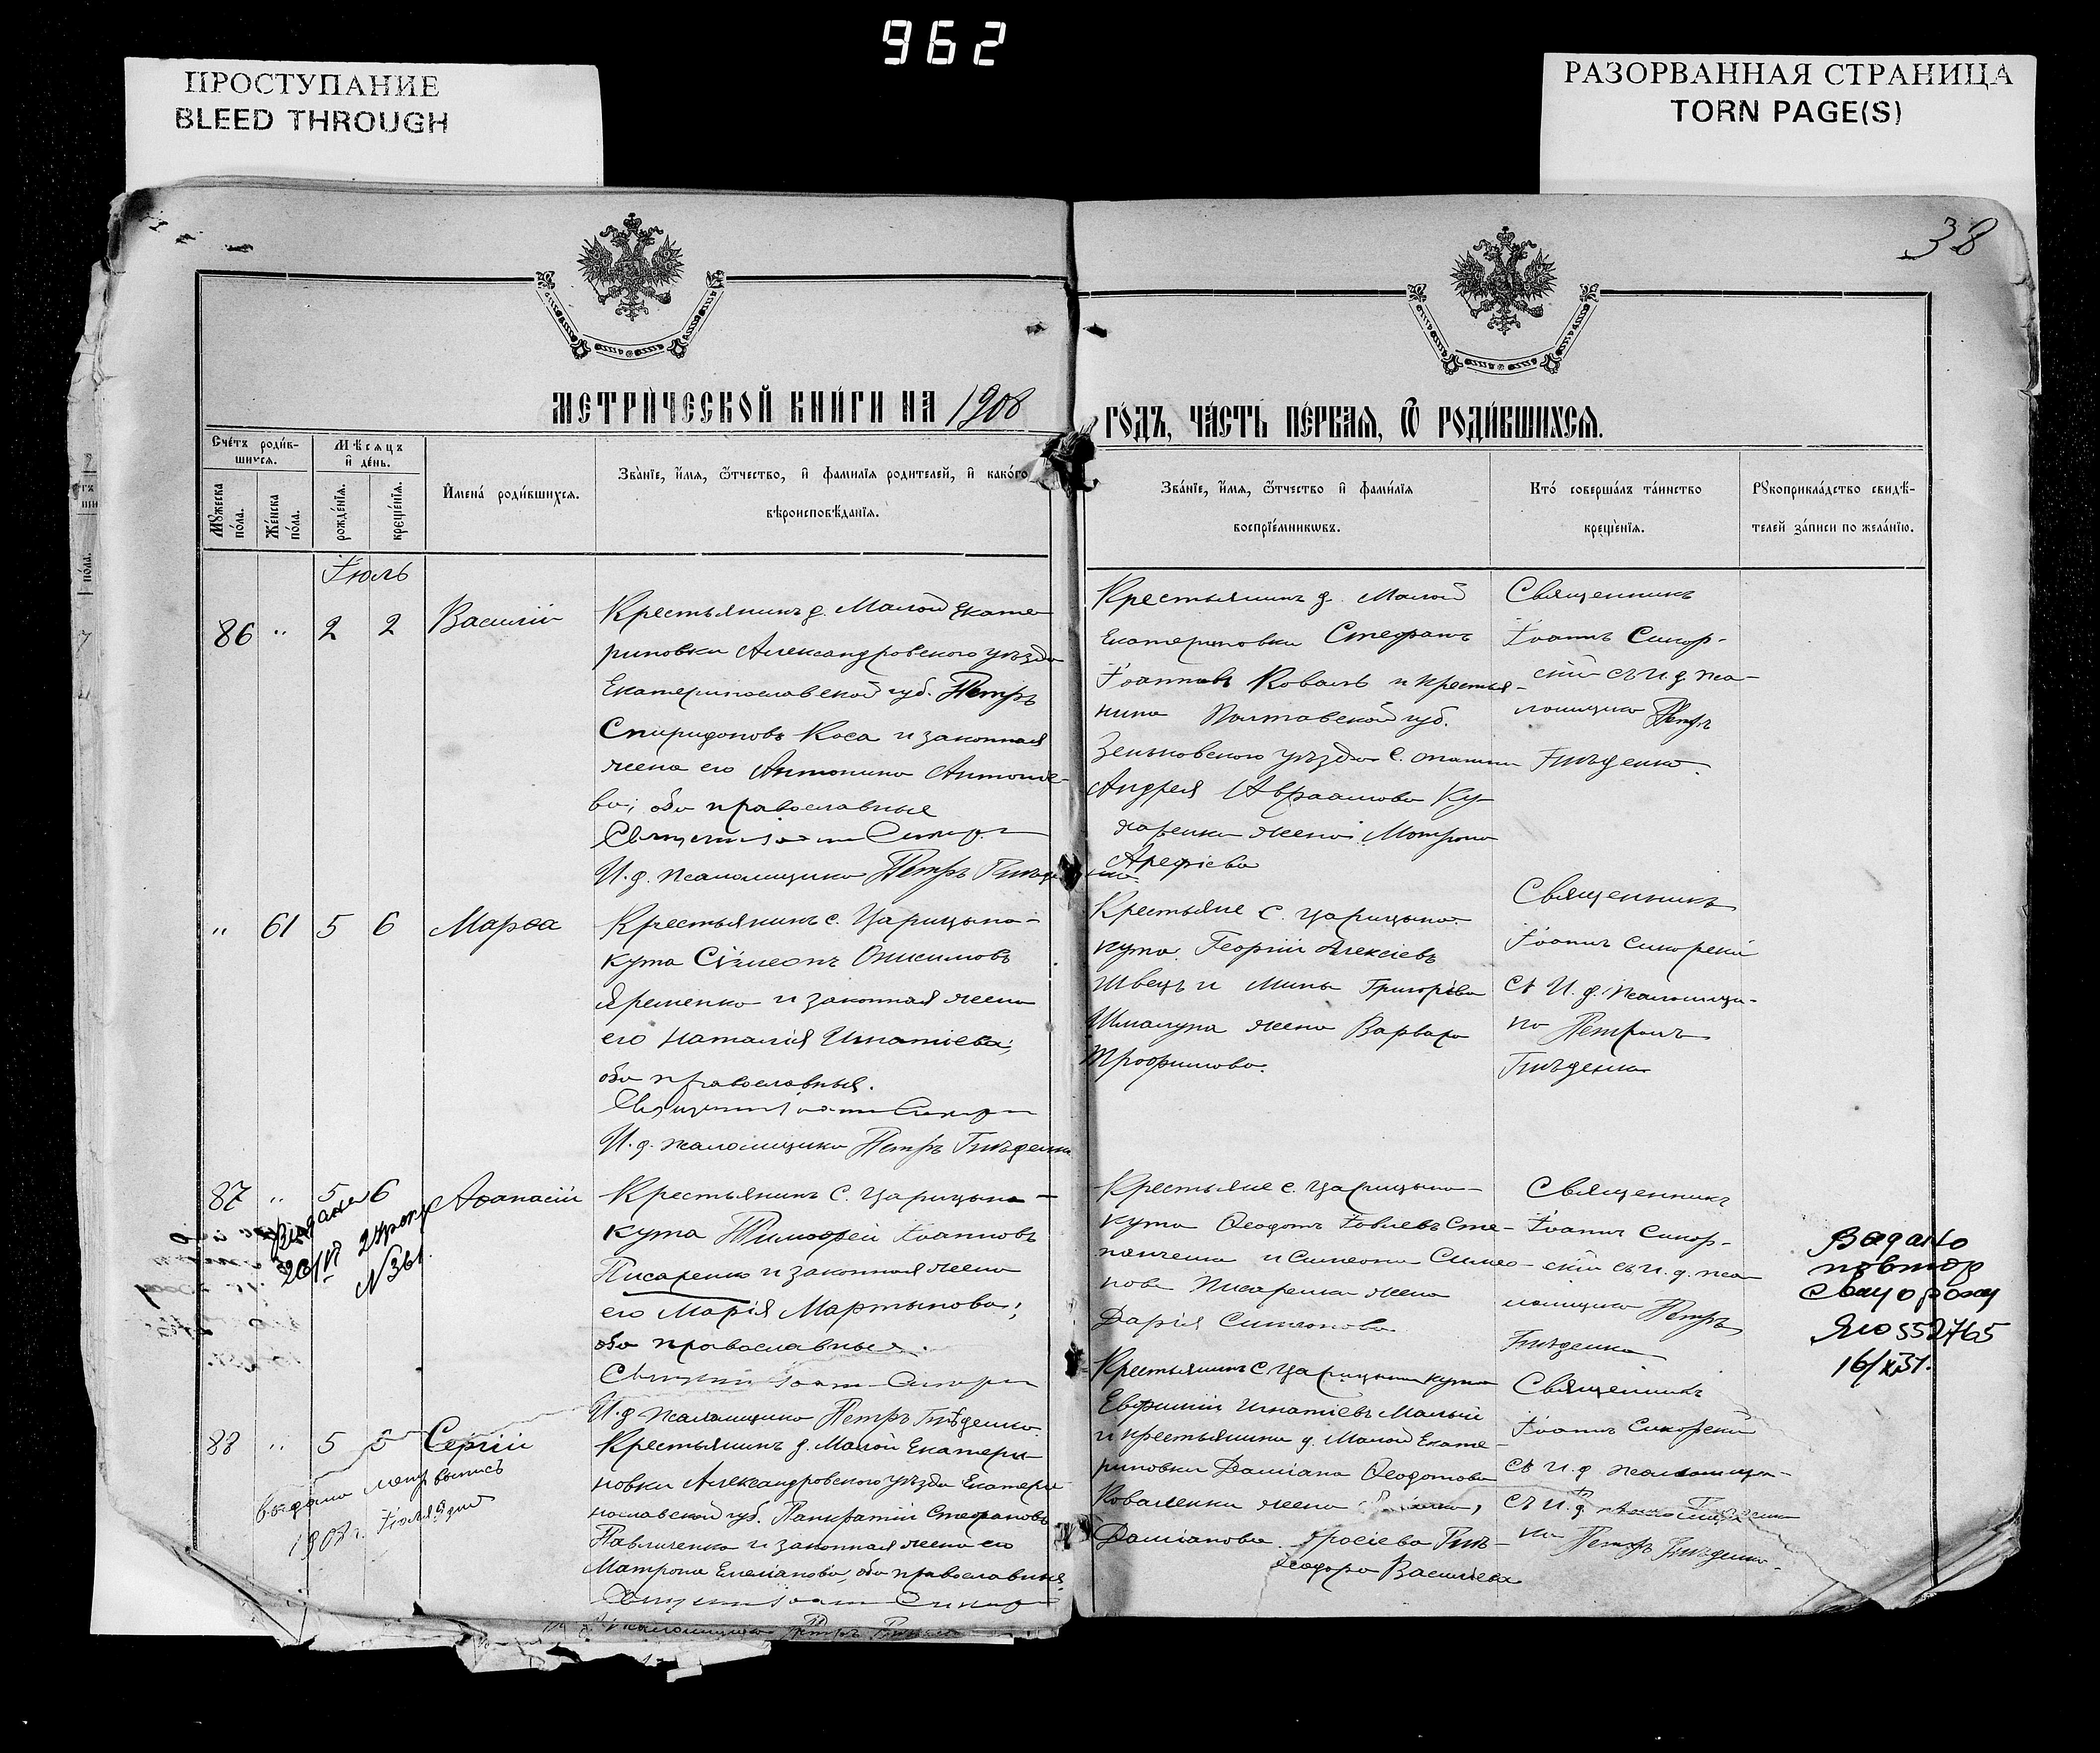 962
ПРОСТУПАНИЕ
BLEED THROUGH
РАЗОРВАННАЯ СТРАНИЦА
TORN PAGE(S)
38
МЕТРИ́ЧЕСКОЙ КНИ́ГИ НА 1908
ГО́ДЪ, ЧА́СТЬ ПЕ́РВАЯ, Ѿ РОДИ́ВШИХСЯ.
Счéтъ роди́в-
шихся.
Мѣсяцъ
и дéнь.
Мꙋжеска
пóла.
Жéнска
пóла.
рождéнїя.
крещéнїя.
Именá роди́вшихся.
Звáнїе, и́мя, ѻ́тчество, и фамилїя родителей, и какóго
вѣроисповѣданїя.
Звáнїе, и́мя, ѻ́тчество и фами́лїя
воспрїéмникѡвъ.
Ктó совершáлъ тáинство
крещéнїя.
Рꙋкоприклáдство свидѣ-
телей зáписи по желáнїю.
Іюль
86 " 2 2 Василій
Крестьянинъ д. Малой Екате-
риновки Александровского уѣзда
Екатеринославской губ. Петръ
Спиридоновъ Коса и законная
жена его Антонина Антоніе-
ва; оба православные
И. д. псаломщика Петръ Гнѣденко
Крестьянинъ д. Малой
Екатериновки Стефанъ
Іоанновъ Коваль и крестья-
нина Полтавской губ.
Зеньковского уѣзда с.
Андрея Авраамова
жена Матрона
Арефіева
Священникъ
Іоаннъ Сикор-
скій съ и. д. пса-
ломщика Петръ
Гнѣденко.
" 61 5 6 Марѳа
Крестьянинъ с. Царицына-
кута Сѵмеонъ Онисимовъ
Яременко и законная жена
его Наталія Игнатіева;
оба православныя.
И. д. псаломщика Петръ Гнѣденко
Крестьяне с. Царицына-
кута Георгій Алексіевъ
Швецъ и Мины Григоріева
жена Варвара
Трофимова.
Священникъ
Іоаннъ Сикорскій
съ И. д. псаломщи-
ко Петромъ
Гнѣденко
87 " 5 6 Аѳанасій
Выдана
20/VI
N 361
Крестьянинъ с. Царицына-
кута Тимоѳей Іоанновъ
Писаренко и законная жена
его Марія Мартынова;
оба православные.
И. д. псаломщика Петръ Гнѣденко.
Крестьяне с. Царицына-
кута Ѳеодотъ Іовлевъ Сте-
паненко и Симеона Симео-
нова Писаренка жена
Дарія Симеонова
Священникъ
Іоаннъ Сикор-
скій съ и. д. пса-
ломщика Петръ
Гнѣденко
Видано
повтор
552765
88 " 5 5 Сергій
Выдана метр. выпись
Крестьянинъ д. Малой Екатери-
новки Александровского уѣзда Екатери-
нославской губ. Панкратій Стефановъ
Павличенко и законная жена его
Матрона Емеліанова, оба православные.
Крестьянинъ с. Царицына кута
Евфимій Игнатіевъ Малый
и крестьянина д. Малой Екате-
риновки Даміана Ѳеодотова
Коваленка жена
Даміанова.
Ѳеодора Васильева
Священникъ
Іоаннъ Сикорскій
съ и. д. псаломщи-
ко Петръ Гнѣденко.